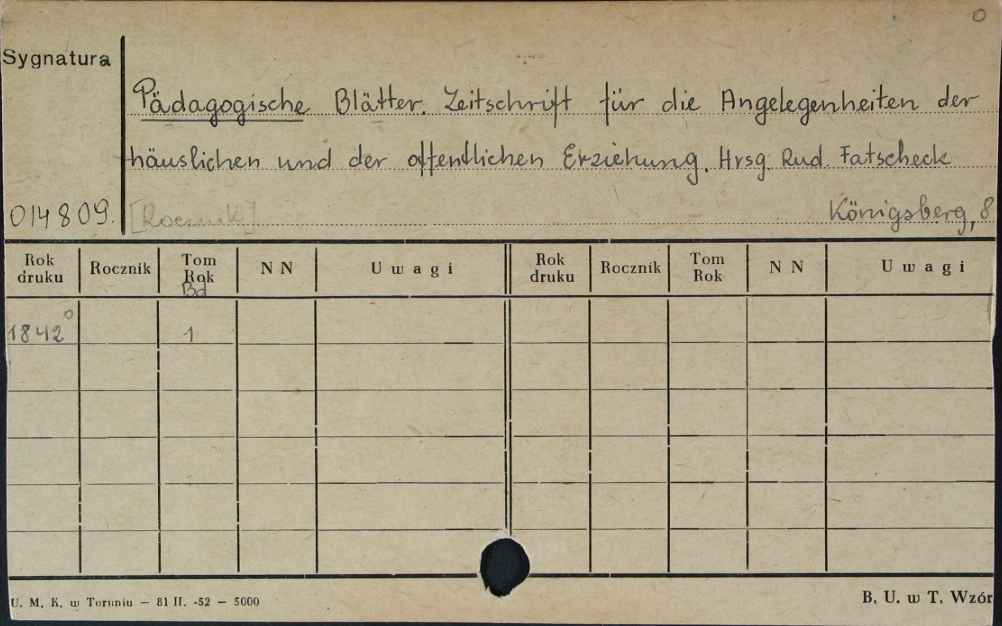 O
Sygnatura
Pädagogische Blätter. Zeitschrift für die Angelegenheiten der
häuslichen und der offentlichen Erziehung. Hrsg. Rud. Fatscheck
014809. [Rocznik] Königsberg, 8
Rok druku Rocznik Tom Rok Bd N N Uwagi Rok druku Rocznik Tom Rok N N Uwagi
1842° 1
U. M. K. w Toruniu – 81 II. -52 – 5000 B. U. w T. Wzór